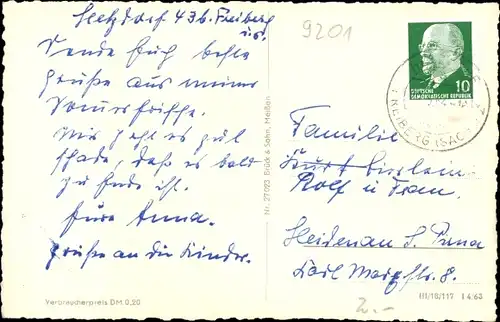 Hetzdorf 43 b. Freiberg
9201
Sende Euch beste
Grüße aus meiner
Sommerfrische.
Mir geht es gut
schade, daß es bald
zu Ende ist.
Eure Anna.
Grüße an die Kinder.
Verbraucherpreis DM 0,20
Nr. 27 093 Brück & Sohn, Meißen
DEUTSCHE
DEMOKRATISCHE REPUBLIK
10
FREIBERG (SACHS)
Familie
Kurt
Rolf u. Frau
Heidenau b. Pirna
Karl Marxstr. 8.
III/18/117 I 4/63
2,-